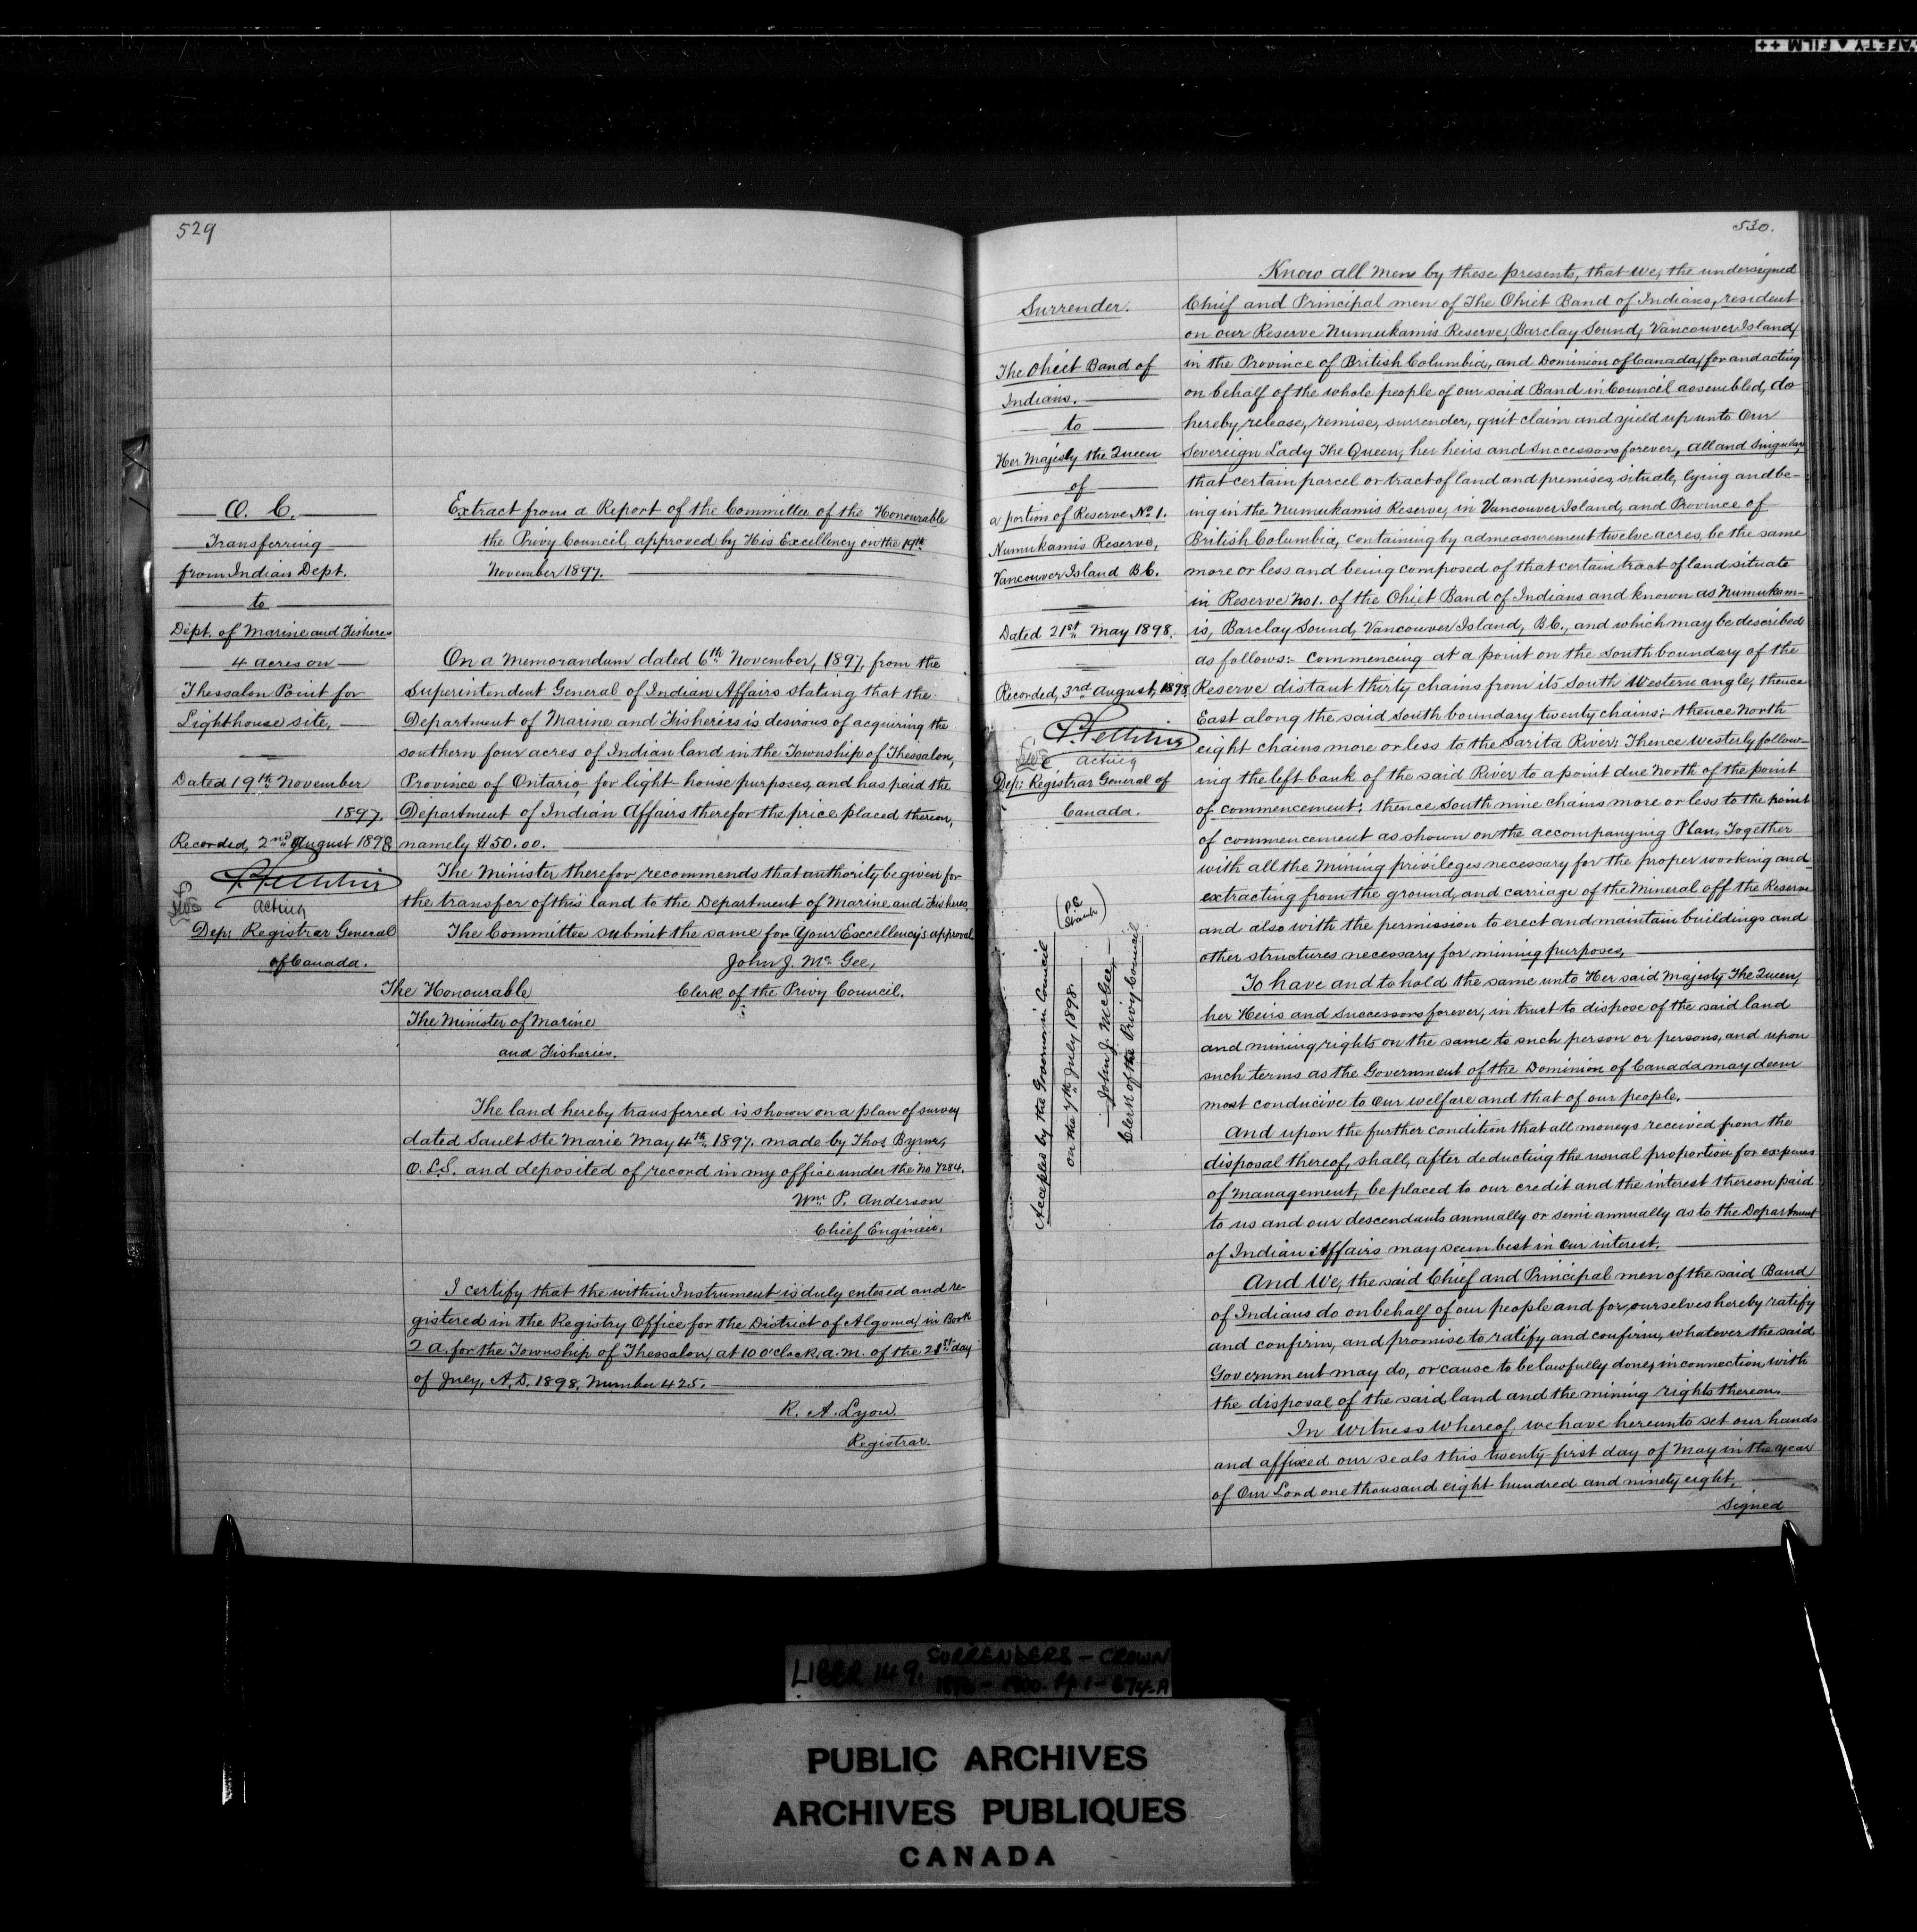 SAFETY A FILM ++
529
O. C.
Transferring
from Indian Dept.
to
Dept. of Marine and Fisheries
4 acres on
Thessalon Point for
Lighthouse site,
Dated 19th November
1897.
Recorded, 2nd August 1898
acting
Dep: Registrar General
of Canada.
Extract from a Report of the Committee of the Honourable
the Privy Council, approved by His Excellency on the 19th
November 1897.
On a Memorandum dated 6th November, 1897, from the
Superintendent General of Indian Affairs stating that the
Department of Marine and Fisheries is desirous of acquiring the
southern four acres of Indian land in the Township of Thessalon,
Province of Ontario, for light-house purposes, and has paid the
Department of Indian Affairs therefor the price placed thereon,
namely $50.00.
The Minister therefor recommends that authority be given for
the transfer of this land to the Department of Marine and Fisheries,
The Committee submit the same for Your Excellency's approval
John J. McGee,
Clerk of the Privy Council.
The Honourable
The Minister of Marine
and Fisheries.
The land hereby transferred is shown on a plan of survey
dated Sault Ste Marie May 4th 1897, made by Thos Byrne,
O.L.S. and deposited of record in my office under the No 7284.
Wm P. Anderson
Chief Engineer.
I certify that the within Instrument is duly entered and re-
gistered in the Registry Office for the District of Algoma, in Book
2 a. for the Township of Thessalon, at 10 o'clock, a.m. of the 21st day
of July, A.D. 1898, Number 425.
R. A. Lyon
Registrar.
530.
Surrender.
The Ohiet Band of
Indians.
to
Her Majesty the Queen
of
a portion of Reserve No 1.
Numukamis Reserve,
Vancouver Island B.C.
Dated 21st May 1898.
Recorded, 3rd August, 1898
acting
Dep: Registrar General of
Canada.
Accepted by the Governor in Council
on the 7th July 1898.
John J. McGee,
Clerk of the Privy Council
Know all Men by these presents, that We, the undersigned
Chief and Principal men of The Ohiet Band of Indians, resident
on our Reserve Numukamis Reserve, Barclay Sound, Vancouver Island,
in the Province of British Columbia, and Dominion of Canada, for and acting
on behalf of the whole people of our said Band in Council assembled, do
hereby, release, remise, surrender, quit claim and yield up unto Our
Sovereign Lady The Queen, her heirs and Successors forever, all and Singular,
that certain parcel or tract of land and premises, situate, lying and be-
ing in the Numukamis Reserve, in Vancouver Island, and Province of
British Columbia, containing by admeasurement twelve acres, be the same
more or less and being composed of that certain tract of land situate
in Reserve No 1. of the Ohiet Band of Indians and known as Numukam-
is, Barclay Sound, Vancouver Island, B.C., and which may be described
as follows:- Commencing at a point on the South boundary of the
Reserve distant thirty chains from its South Western angle, thence
East along the said South boundary twenty chains; thence North
eight chains more or less to the Sarita River; Thence Westerly follow-
ing the left bank of the said River to a point due North of the point
of commencement; thence South nine chains more or less to the point
of commencement as shown on the accompanying Plan, Together
with all the Mining privileges necessary for the proper working and
extracting from the ground, and carriage of the Mineral off the Reserve
and also with the permission to erect and maintain buildings and
other structures necessary for mining purposes,
To have and to hold the same unto Her said Majesty The Queen,
her Heirs and Successors forever, in trust to dispose of the said land
and mining rights on the same to such person or persons, and upon
such terms as the Government of the Dominion of Canada may deem
most conducive to Our Welfare and that of our people.
And upon the further condition that all moneys received from the
disposal thereof, shall, after deducting the usual proportion for expenses
of Management, be placed to our credit and the interest thereon paid
to us and our descendants annually or semi annually as to the Department
of Indian Affairs may seem best in Our interest.
And We, the said Chief and Principal men of the said Band
of Indians do on behalf of our people and for ourselves hereby ratify
and confirm, and promise to ratify and confirm, whatever the said
Government may do, or cause to be lawfully done, in connection with
the disposal of the said land and the mining rights thereon.
In Witness Whereof, we have hereunto set our hands
and affixed our seals this twenty first day of May in the year
of Our Lord one thousand eight hundred and ninety eight,
Signed
LIBER 149. SURRENDERS - CROWN
1896 - 1900. Pp 1 - 674-A
PUBLIC ARCHIVES
ARCHIVES PUBLIQUES
CANADA